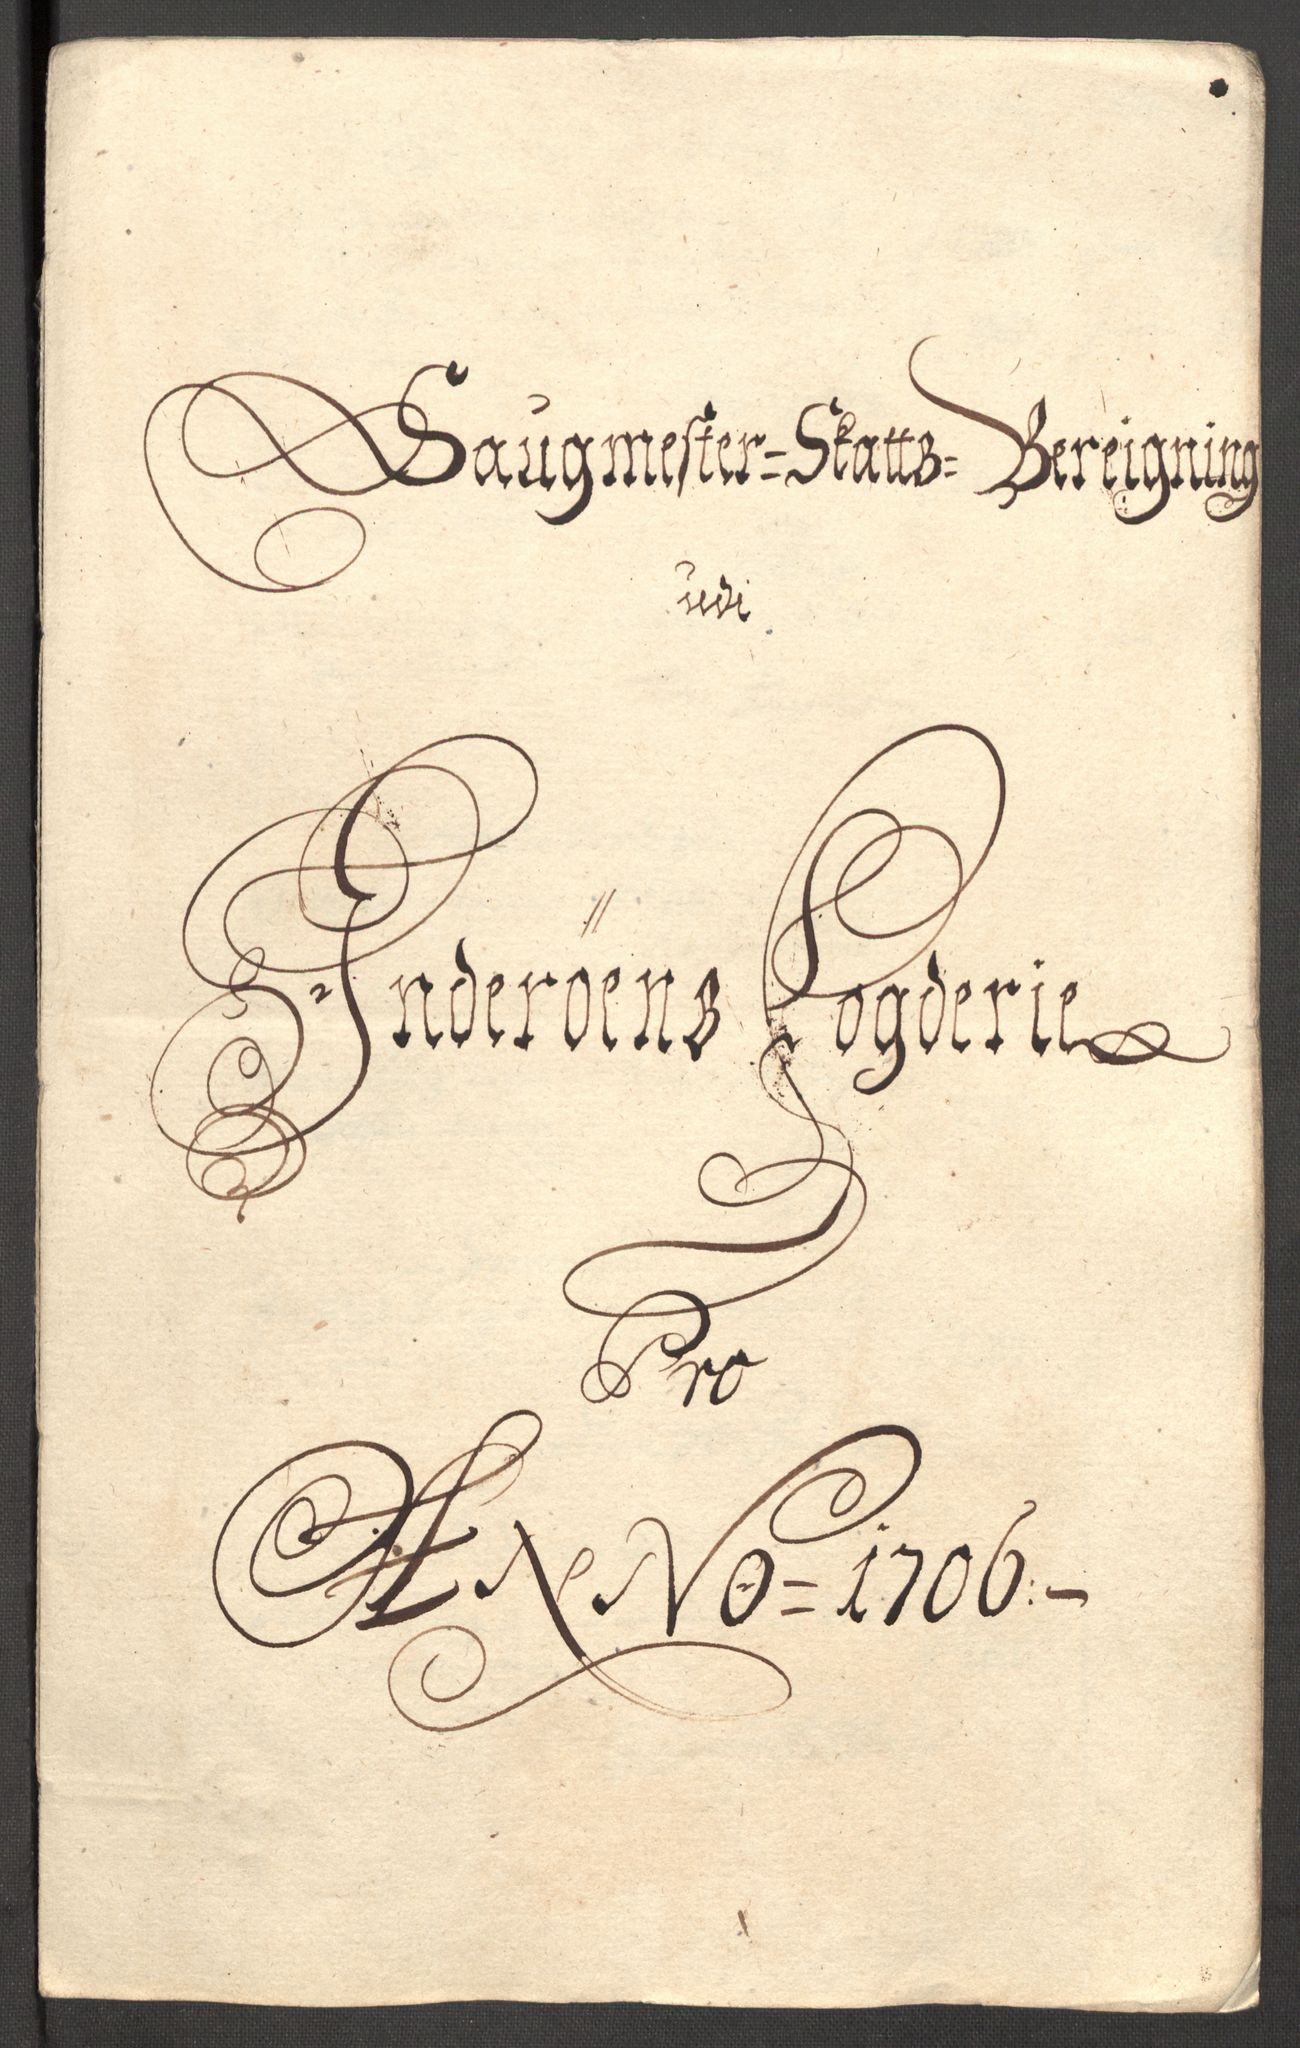 Saugmester=Skattß=Bereigning
udi
Inderöens Fogderie
Pro
ANNO=1706:-